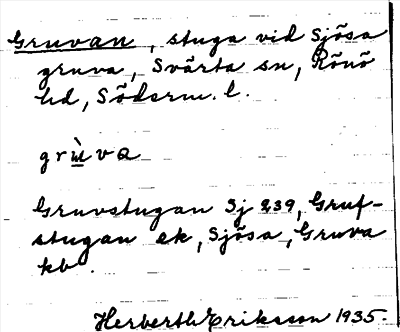 Gruvan, stuga vid Sjösa
gruva, Svärta sn, Rönö
hd, Söderm. l.
grù̲va
Gruvstugan Sj 239, Gruf-
stugan ek, Sjösa, Gruva
kb.
Herberth Eriksson 1935.